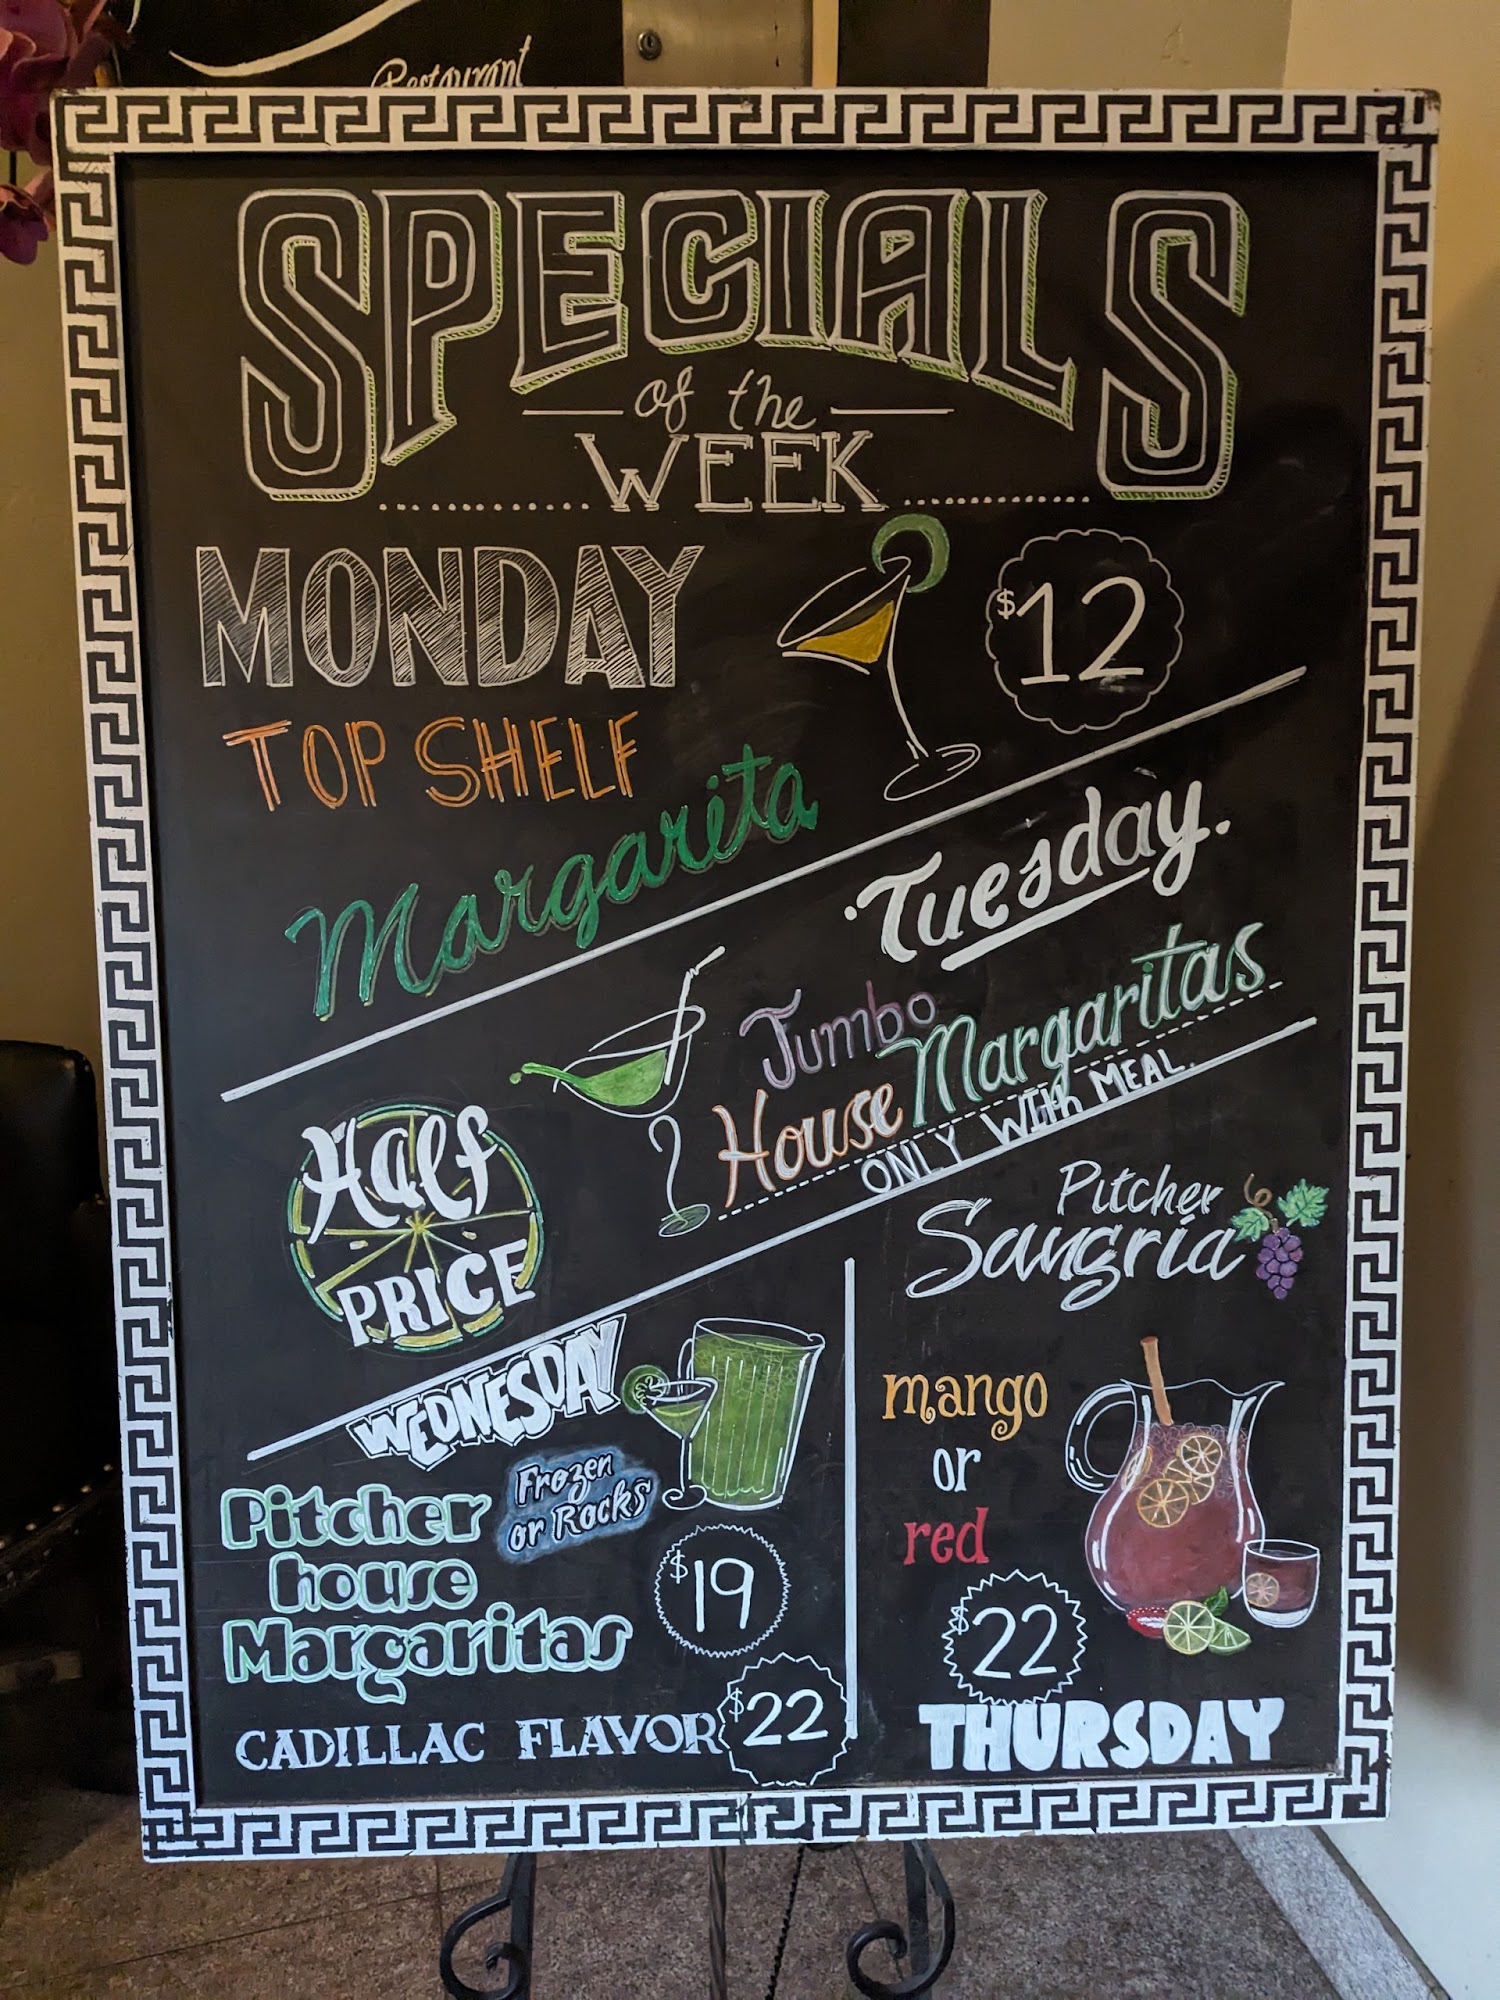 Restaurant
SPECIALS
of the
WEEK
MONDAY
$12
TOP SHELF
Margarita
Tuesday
Jumbo
House Margaritas
ONLY WITH MEAL.
Half
PRICE
WEDNESDAY
Frozen
or Rocks
Pitcher
house
Margaritas
$19
CADILLAC FLAVOR $22
Pitcher
Sangria
mango
or
red
$22
THURSDAY